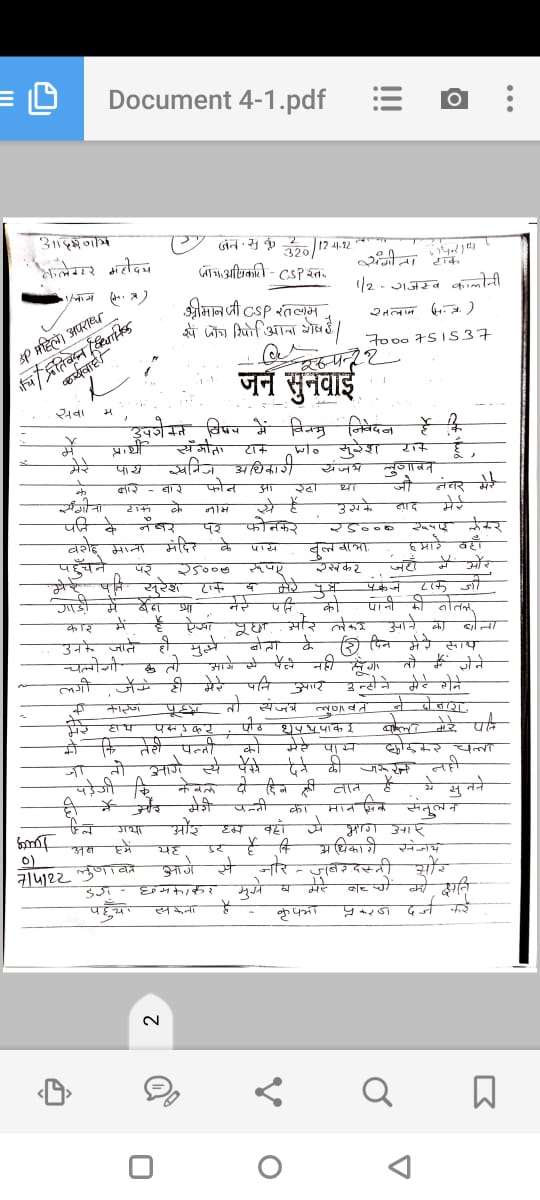 Document 4-1.pdf
आदरणीय
कलेक्टर महोदय
(म.प्र)
जन.सु.क्र 2/320/12.4.22
जाँच अधिकारी - CSP रतलाम
श्रीमान जी CSP रतलाम
से जाँच रिपोर्ट आना शेष है/
संगीता टाक
1/2 - राजस्व कालोनी
रतलाम (म.प्र.)
7000751537
महिला अपराध
कार्यवाही
जन सुनवाई
सेवा में,
उपरोक्त विषय में विनम्र निवेदन है कि
मैं प्रार्थी संगीता टाक W/o सुरेश टाक हूँ,
मेरे पास खनिज अधिकारी संजय लुणावत
के बार-बार फोन आ रहा था जो नंबर मेरे
संगीता टाक के नाम से है उसके बाद मेरे
पति के नंबर पर फोनकर २5००० रूपए लेकर
माता मंदिर के पास बुलवाया. हमारे वहाँ
पहुँचने पर २5००० रूपए रखकर जहाँ में और
मेरे पति सुरेश टाक व मेरे पुत्र पंकज टाक जो
गाडी में बैठा था मेरे पति को पानी की बोतल
कार में है ऐसा पूछा और लेकर आने को बोला
उनके जाते ही मुझे बोला के दिन मेरे साथ
चलोगी तो आगे से पैसे नही लूँगा तो मैं रोने
लगी जैसे ही मेरे पति आए उन्होने मेरे रोने
का कारण पूछा तो संजय लुणावत ने दोबारा
मेरे हाथ पकडकर, पीठ थपथपाकर बोला मेरे पति
से कि तेरी पत्नी को मेरे पास छोडकर चला
जा तो आगे से पैसे देने की जरूरत नही
पडेगी कि केवल दो दिन की बात है ये सुनते
ही मैं और मेरी पत्नी का मानसिक संतुलन
हिल गया और हम वहाँ से भाग आए
अब हमें यह डर है कि अधिकारी संजय
लुणावत आगे से जोर-जबरदस्ती और
डरा-धमकाकर मुझे व मेरे बच्चों को क्षति
पहुँचा सकता है - कृपया प्रकरण दर्ज करें
01
7/4/22
2